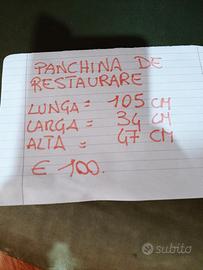 PANCHINA DE
RESTAURARE
LUNGA = 105 CM
LARGA = 34 CM
ALTA = 47 CM
€ 100.
subito